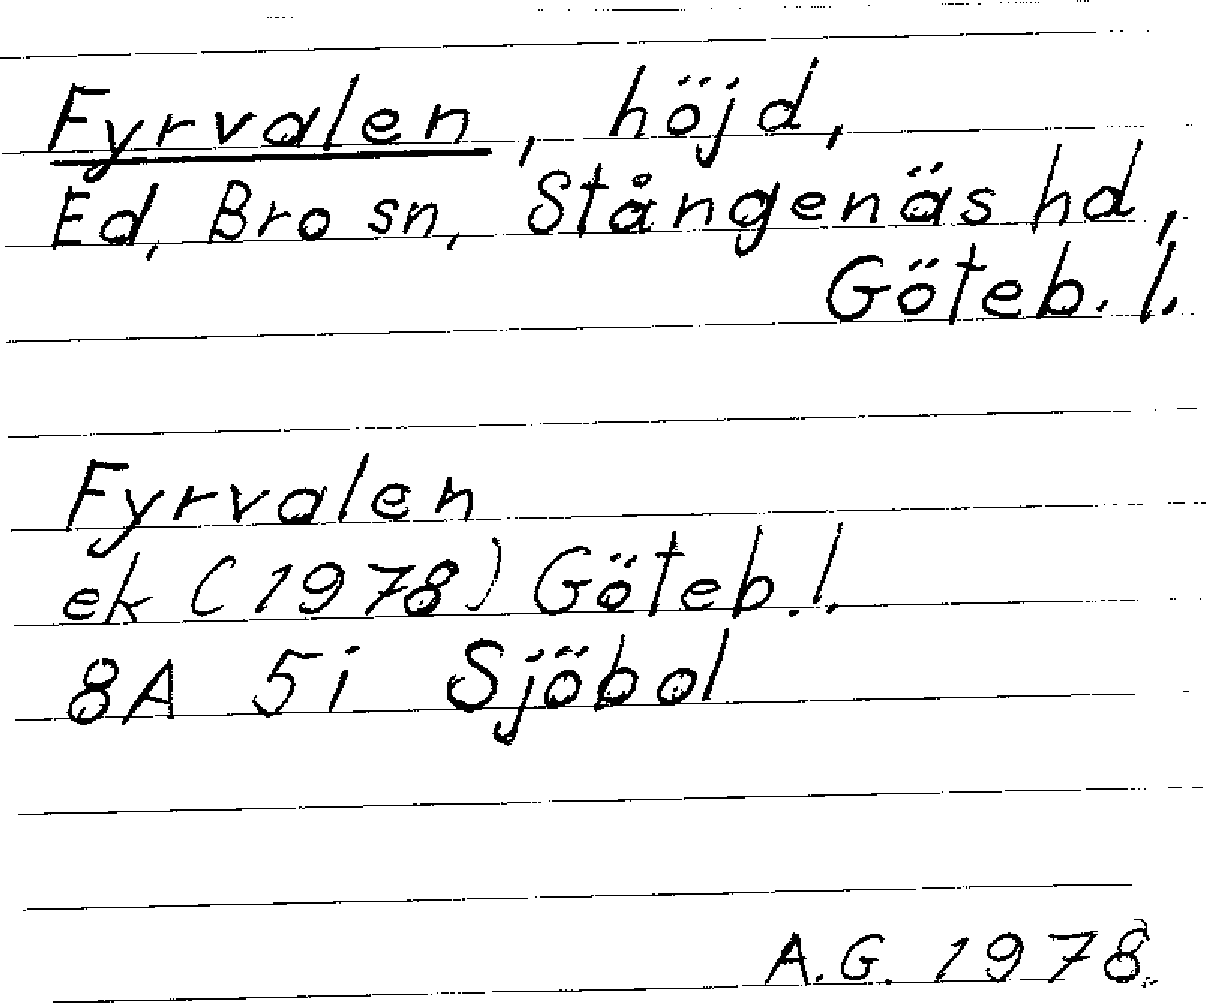 Fyrvalen, höjd,
Ed, Bro sn, Stångenäs hd,
Göteb. l.
Fyrvalen
ek (1978) Göteb. l.
8A 5i Sjöbol
A.G. 1978.